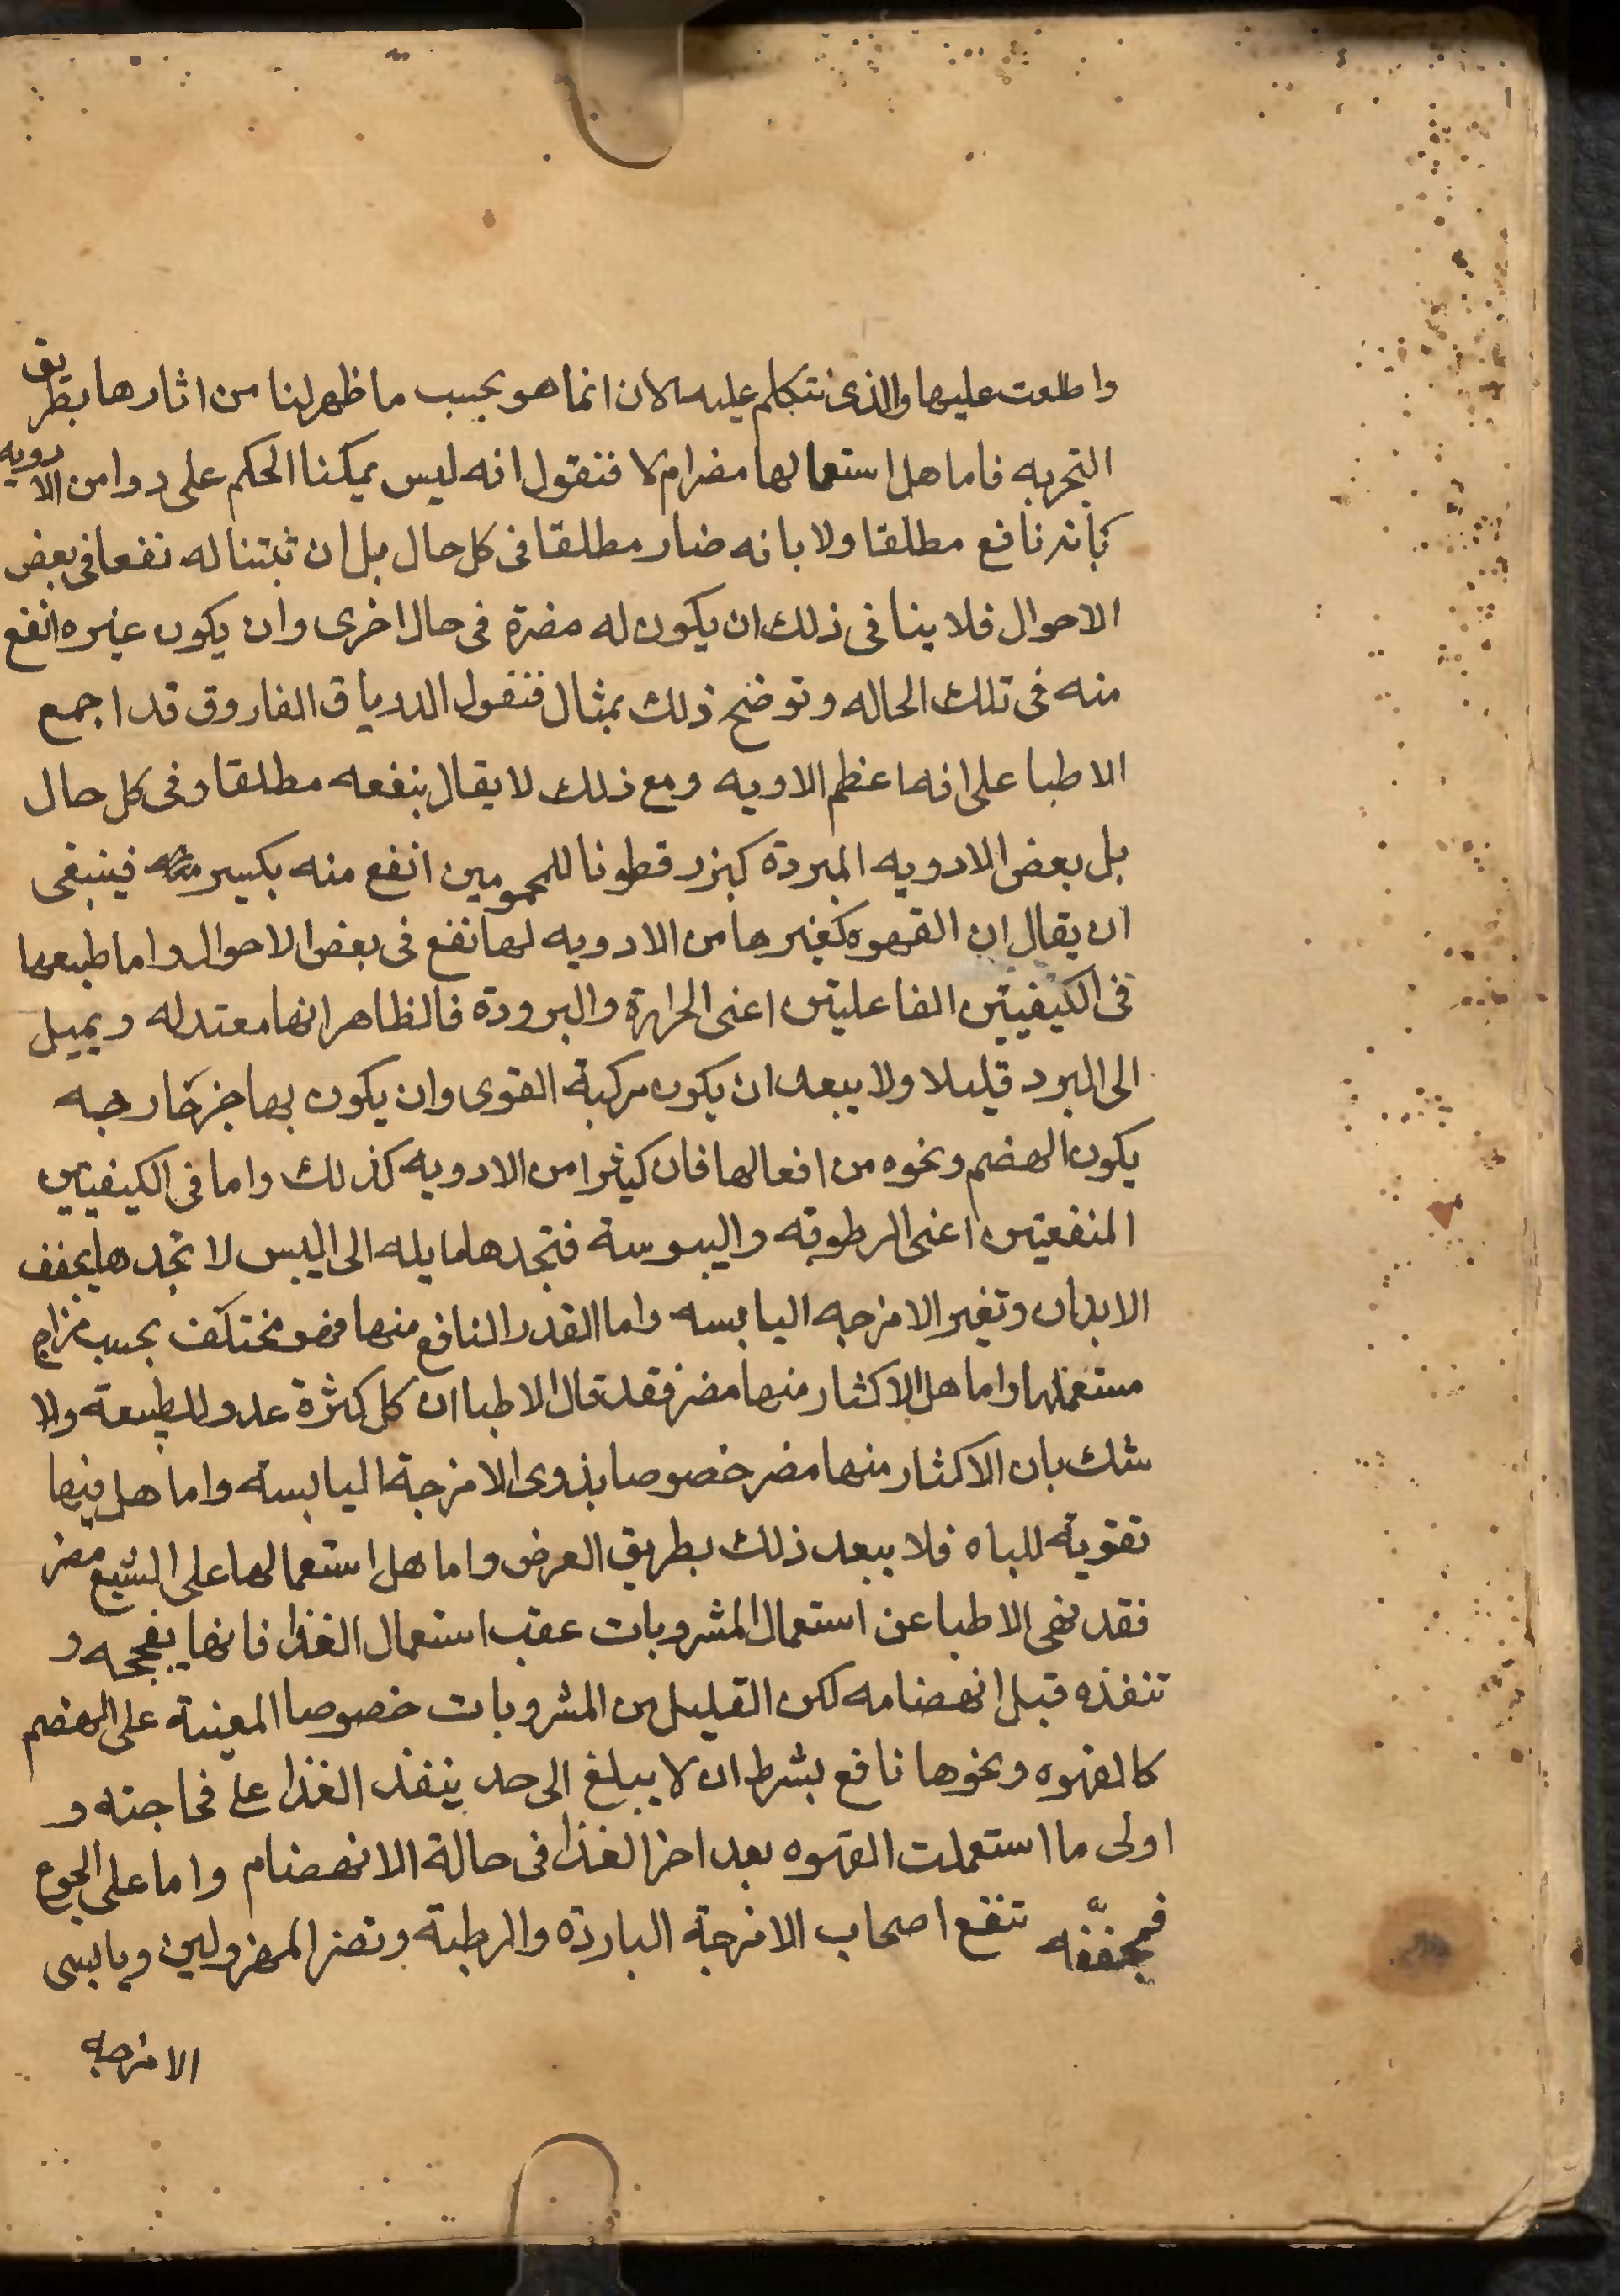 واطلعت عليها والذى نتكلم عليه الان انما هو بحسب ما ظهر لنا من اثارها بطريق
التجربه فاما هل استعمالها مضر ام لا فنقول انه ليس يمكننا الحكم على دوا من الادويه
بانه نافع مطلقا ولا بانه ضار مطلقا فى كل حال بل ان ثبتنا له نفعا فى بعض
الاحوال فلا ينافى ذلك ان يكون له مضرة فى حال اخرى وان يكون غيره انفع
منه فى تلك الحاله وتوضح ذلك بمثال فنقول الدرياق الفاروق قد اجمع
الاطبا على انه اعظم الاويه ومع ذلك لا يقال بنفعه مطلقا وفى كل حال
بل بعض الادويه المبردة كبزر قطونا للمحمومين انفع منه بكسير فينبغى
ان يقال ان القهوه كغيرها من الادويه لها نفع فى بعض الاحوال واما طبعها
فى الكيفيتين الفاعليتين اعنى الحرارة والبرودة فالظاهر انها معتدله ويميل
الى البرد قليلا ولا يبعد ان يكون مركبة القوى وان يكون بها جز حار به
يكون الهضم ونحوه من افعالها فان كيثرا من الادويه كذلك واما فى الكيفيتين
المنفعتين اعنى الرطوبه واليبوسة فتجدها مايله الى اليبس لا تجدها يجفف
الابدان وتغير الامزجه اليابسه واما القدر النافع منها فهو مختلف بحسب مزاج
مستعملها واما هل الاكثار منها مضر فقد قال الاطبا ان كل كثرة عدو للطبيعة ولا
شك بان الاكثار منها مضر خصوصا بذوى الامزجة اليابسة واما هل فيها
تقويه للباه فلا يبعد ذلك بطريق العرض واما هل استعمالها على الشبع مضر
فقد نهى الاطبا عن استعمال المشروبات عقب استعمال الغذا فانها يفججه و
تنفذه قبل انهضامه لكن القليل من المشروبات خصوصا المعينة على الهضم
كالقهوه ونحوها نافع بشرط ان لا يبلغ الى حد ينفذ الغذا على فجاجته و
اولى ما استعملت القهوه بعد اخز الغذا فى حالة الانهضام واما على الجوع
فمجففه تنفع اصحاب الامزجة الباردة والرطبة وتضر المهزولين ويابسى
الامزجه